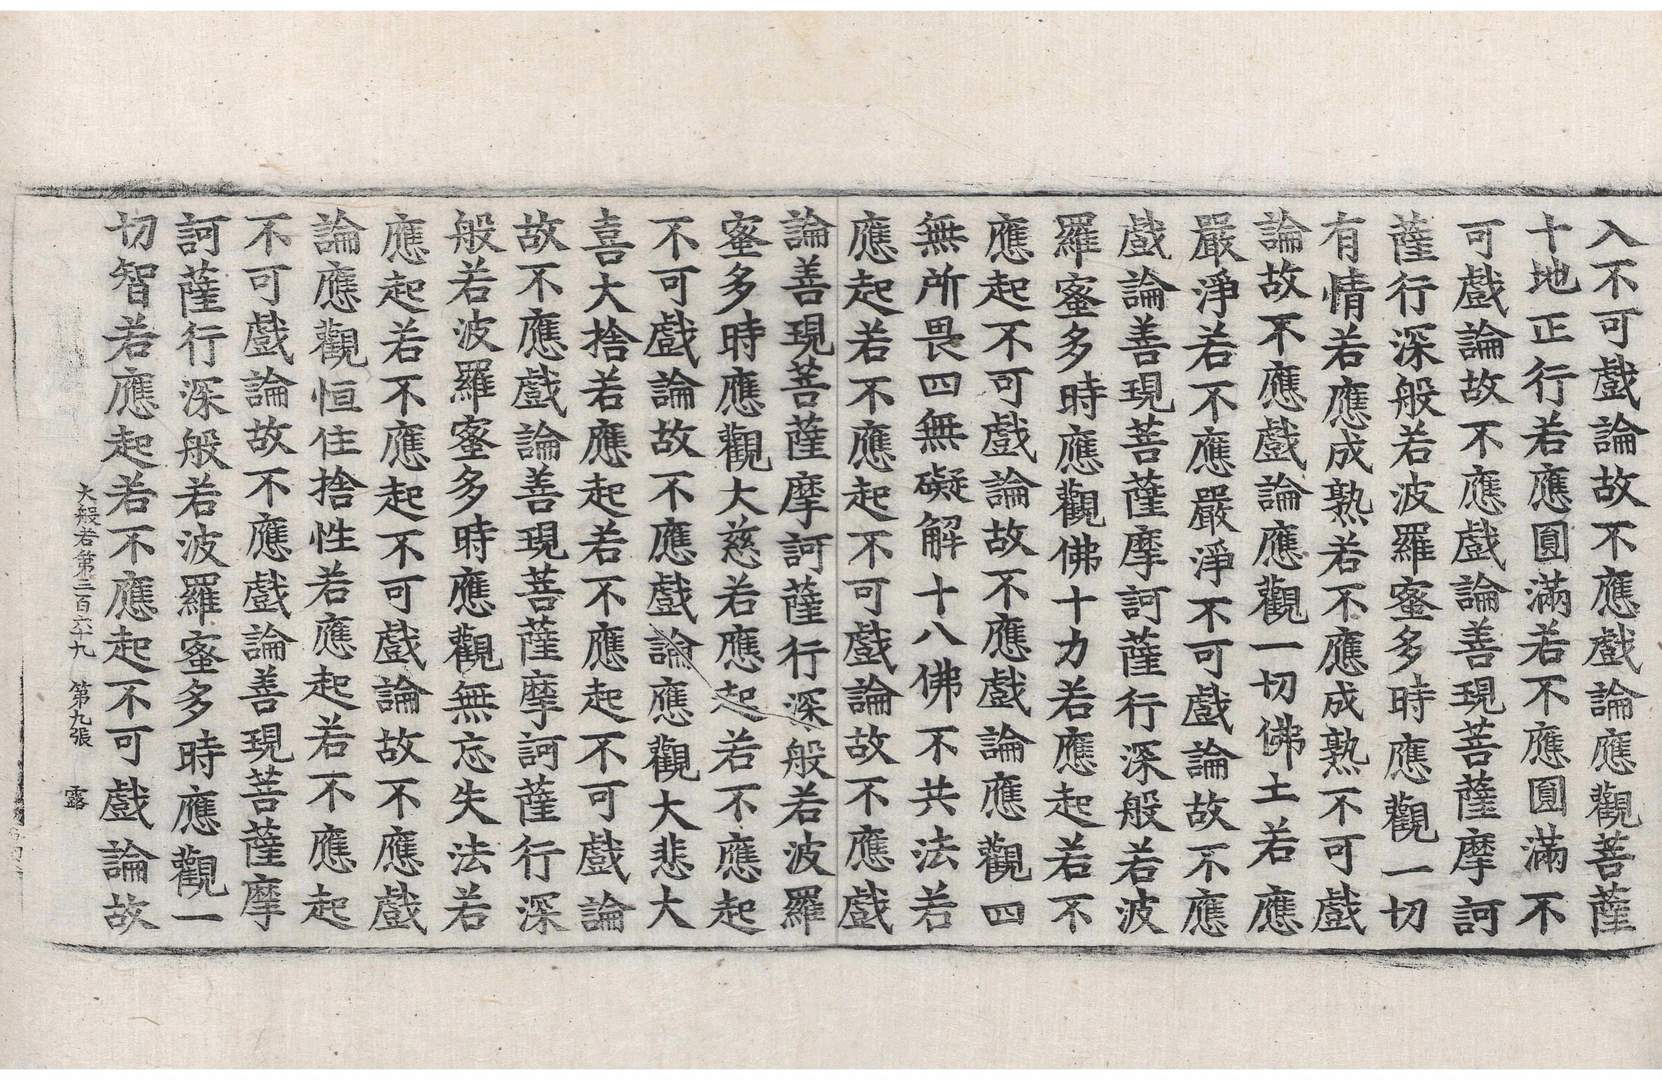 入不可戲論故不應戲論應觀菩薩
十地正行若應圓滿若不應圓滿不
可戲論故不應戲論善現菩薩摩訶
薩行深般若波羅蜜多時應觀一切
有情若應成熟若不應成熟不可戲
論故不應戲論應觀一切佛土若應
嚴淨若不應嚴淨不可戲論故不應
戲論善現菩薩摩訶薩行深般若波
羅蜜多時應觀佛十力若應起若不
應起不可戲論故不應戲論應觀四
無所畏四無礙解十八佛不共法若
應起若不應起不可戲論故不應戲
論善現菩薩摩訶薩行深般若波羅
蜜多時應觀大慈若應起若不應起
不可戲論故不應戲論應觀大悲大
喜大捨若應起若不應起不可戲論
故不應戲論善現菩薩摩訶薩行深
般若波羅蜜多時應觀無忘失法若
應起若不應起不可戲論故不應戲
論應觀恒住捨性若應起若不應起
不可戲論故不應戲論善現菩薩摩
訶薩行深般若波羅蜜多時應觀一
切智若應起若不應起不可戲論故
大般若第三百六十九 第九張 露